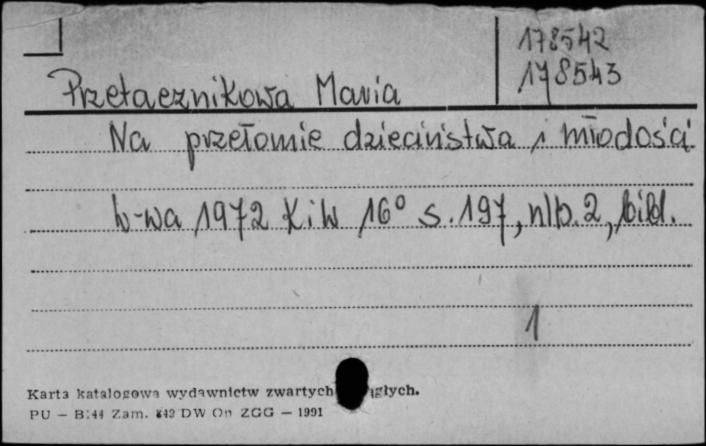 178542
178543
Przetacznikowa Maria
Na przełomie dzieciństwa i młodości
W-wa 1972 KiW 16° s. 197, nlb. 2, bibl.
1
Karta katalogowa wydawnictw zwartych ciągłych.
PU — B/44 Zam. DW Op ZGG — 1991